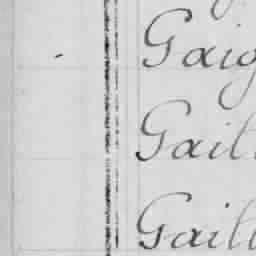 Gaig
Gail
Gaill